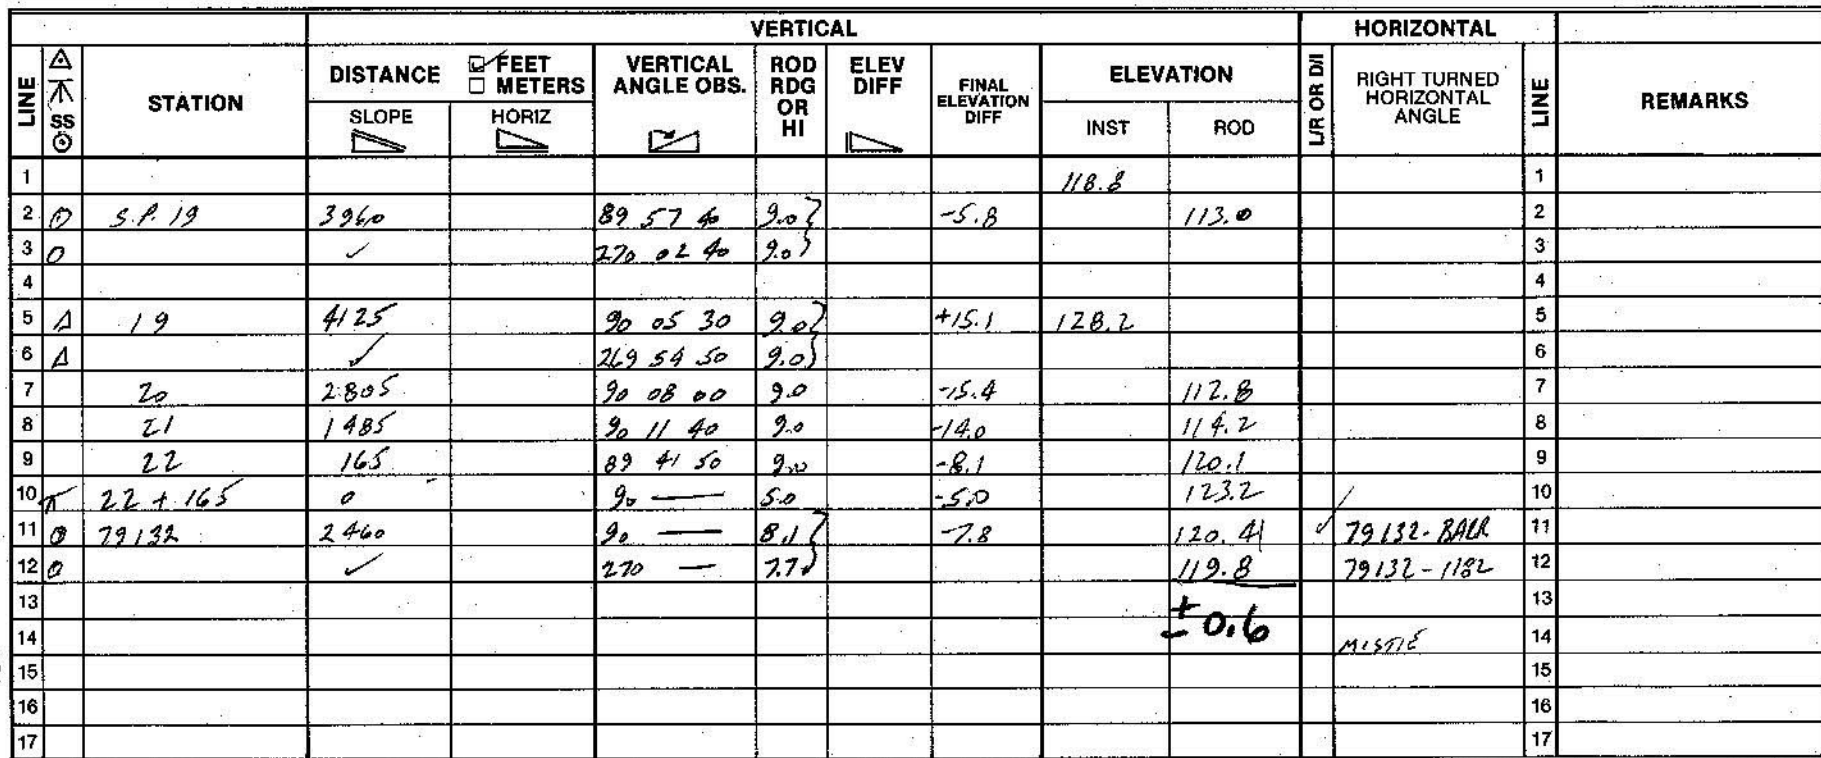 VERTICAL HORIZONTAL
LINE SS STATION DISTANCE FEET METERS VERTICAL ANGLE OBS. ROD RDG OR HI ELEV DIFF FINAL ELEVATION DIFF ELEVATION L/R OR D/I RIGHT TURNED HORIZONTAL ANGLE LINE REMARKS
SLOPE HORIZ INST ROD
1 118.8 1
2 S.P. 19 3960 89 57 40 9.0 -5.8 113.0 2
3 ✓ 270 02 40 9.0 3
4 4
5 Δ 19 4125 90 05 30 9.0 +15.1 128.2 5
6 Δ ✓ 269 54 50 9.0 6
7 20 2805 90 08 00 9.0 -15.4 112.8 7
8 21 1485 90 11 40 9.0 -14.0 114.2 8
9 22 165 89 41 50 9.0 -8.1 120.1 9
10 22 + 165 0 90 — 5.0 -5.0 123.2 10
11 79132 2460 90 — 8.1 -7.8 120.4 ✓ 79132-BALR 11
12 ✓ 270 — 7.7 119.8 79132-1182 12
13 ± 0.6 13
14 MISTIE 14
15 15
16 16
17 17